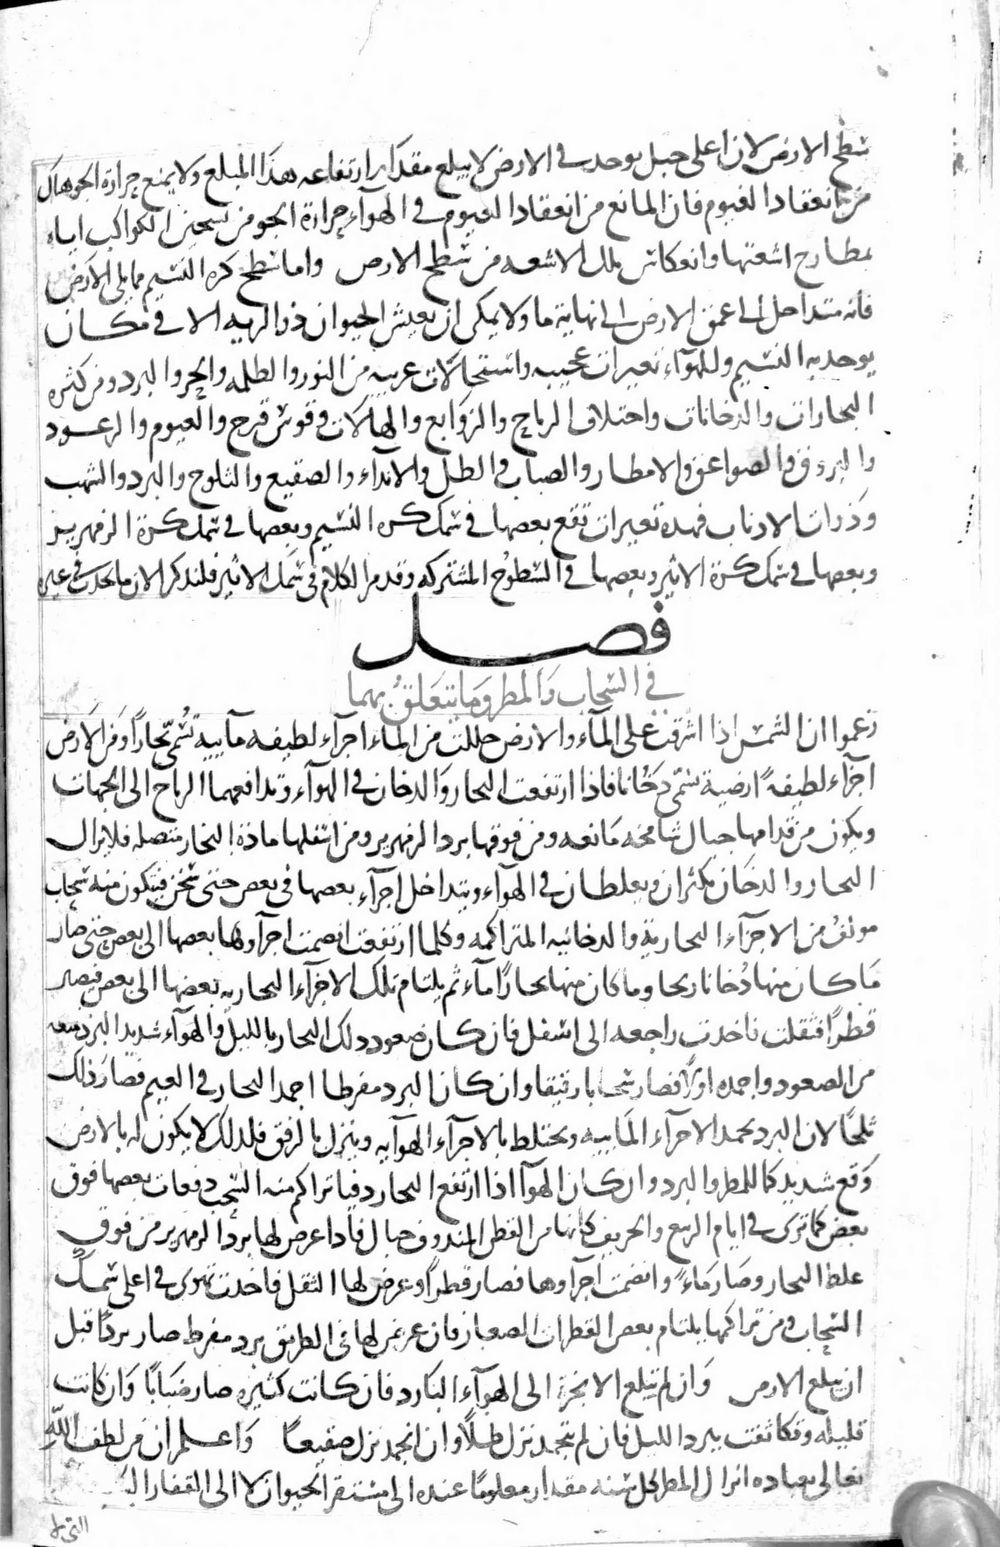 سطح الارض لان اعلى جبل يوجد في الارض لا يبلغ مقدار ارتفاعه هذا المبلغ ولا يمنع حرارة الجو هناك
من انعقاد الغيوم فان المانع من انعقاد الغيوم في الهواء حرارة الجو من تسخين الكواكب اياه
بمطارح اشعتها وانعكاس تلك الاشعه من سطح الارض واما سطح كره النسيم مما يلي الارض
فانه متداخل الى عمق الارض الى نهاية ما ولا يمكن ان يعيش الحيوان ذو الريه الا في مكان
يوجد به النسيم وللهوآء تغيرات عجيبه واستحالات غريبه من النور والظلمه والحر والبرد ومن كثره
البخارات والدخانات واختلاف الرياح والزوابع والهالات وقوس قزح والغيوم والرعود
والبروق والصواعق والامطار والضباب والطل والانداء والصقيع والثلوج والبرد والشهب
وذوات الاذناب فهذه تغيرات تقع بعضها في سمك كره النسيم وبعضها في سمك كرة الزمهرير
وبعضها في سمك كرة الاثير وبعضها في السطوح المشتركه وقد مر الكلام في سمك الاثير فلنذكر الان ما يحدث في غيره
فصل
في السحاب والمطر وما يتعلق بهما
زعموا ان الشمس اذا اشرقت على المآء والارض حللت من الماء اجزآء لطيفه مآييه تسمى بخاراً ومن الارض
اجزآء لطيفةً ارضية تسمى دخانا فاذا ارتفعت البخار والدخان في الهوآء وتدافعهما الرياح الى الجهات
ويكون من قدامها جبال شامخه مانعه ومن فوقها برد الزمهرير ومن اسفلها مادة البخار متصله فلا يزال
البخار والدخان يكثران ويغلظان في الهوآء ويتداخل اجزآء بعضها في بعض حتى يثخن فيتكون منه سحاب
مولف من الاجزآء البخارية والدخانيه المتراكمه وكلما ارتفعت انضمت اجزآوها بعضها الى بعض حتى صار
ما كان منها دُخانا ريحا وما كان منها بخاراً مآء ثم يلتام تلك الاجزآء البخاريه بعضها الى بعض فيصير
قطراً فثقلت فاخذت راجعه الى اسفل فان كان صعود ذلك البخار بالليل والهوآء شديد البرد منعه
من الصعود واجمده اولاً فصار سحابا رقيقا وان كان البرد مفرطا اجمد البخار في الغيم فصار ذلك
ثلجًا لان البرد يجمد الاجزآء المآييه ويختلط بالاجزآء الهوآيه وينزل بالرفق فلذلك لا يكون له بالارض
وقع شديد كما للمطر والبرد وان كان الهوآ اذا ارتفع البخار دفيا تراكم منه السحب دفعات بعضها فوق
بعض كما ترى في ايام الربيع والخريف كانها من القطن المندوف جبال فاذا عرض لها برد الزمهرير من فوق
غلظ البخار وصار مآء وانضمت اجزآوها فصار قطراً وعرض لها الثقل فاخذت تهوى في اعلى سمك
السحاب ومن تراكمها يلتام بعض القطرات الصغار فان عرض لها في الطريق برد مفرط صار برداً قبل
ان تبلغ الارض وان لم تبلغ الابخرة الى الهوآء البارد فان كانت كثيره صار ضباباً وان كانت
قليله وتكاثفت ببرد الليل فان لم تجمد نزل طلاً وان انجمد نزل صقيعاً واعلم ان من لطف الله
تعالى بعباده انزال المطر كل سنه مقدار معلوما عنده الى مستقر الحيوان لا الى القفار
التي لا